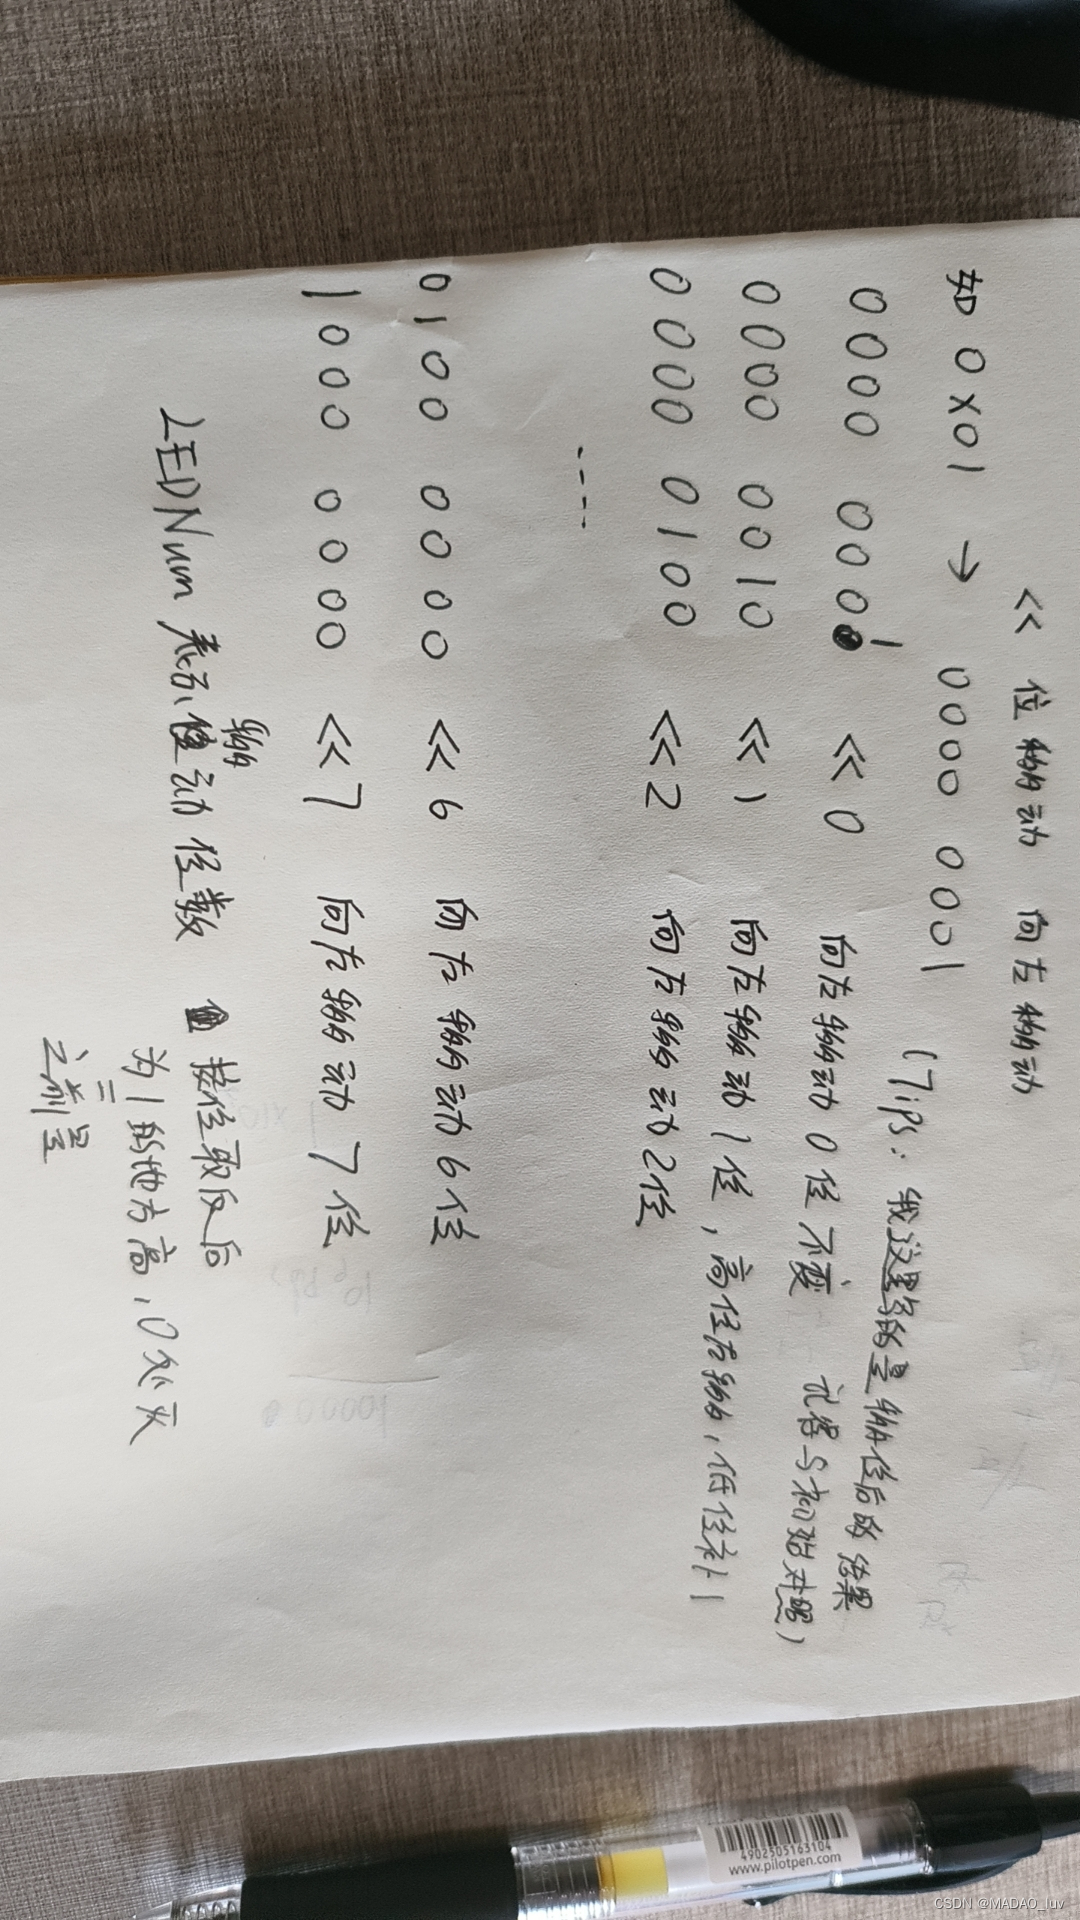 << 位移动 向左移动
如 0x01 → 0000 0001
(Tips: 我这里写的是移位后的结果
0000 0001 << 0 向左移动 0位 不变 记得与初始对照)
0000 0010 << 1 向左移动 1位, 高位左移, 低位补1
0000 0100 << 2 向左移动 2位
----
0100 0000 << 6 向左移动 6位
1000 0000 << 7 向左移动 7位
LEDNum 表示移动位数 按位取反后
为1的地方高, 0处灭
之前是
4902505163104
www.pilotpen.com
CSDN @MADAO_luv